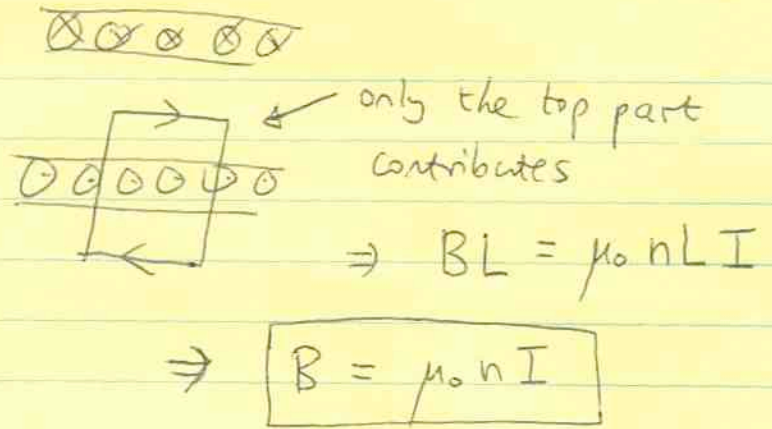 only the top part
contributes
⇒ BL = μ₀ n L I
⇒ B = μ₀ n I